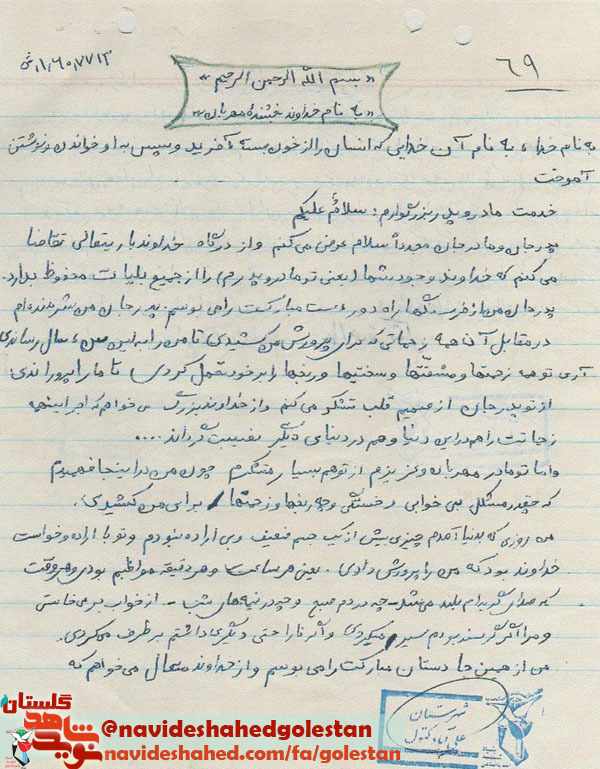 ۶۹
۷۷۱۳ر۶۰ر۱ر ش
«بسم الله الرحمن الرحیم»
«به نام خداوند بخشندهٔ مهربان»
به نام خدا، به نام آن خدایی که انسان را از خون بسته آفرید و سپس به او خواندن و نوشتن
آموخت
خدمت مادر و پدر بزرگوارم: سلامٌ علیکم
پدر جان و مادر جان مجدداً سلام عرض می‌کنم و از درگاه خداوند باریتعالی تقاضا
می‌کنم که خداوند وجود شما (یعنی تو مادر و پدرم) را از جمیع بلیات محفوظ بدارد.
پدر جان من از فرسنگها راه دور دست مبارکت را می بوسم. پدر جان من شرمنده‌ام
در مقابل آن همه زحماتی که برای پرورش من کشیدی تا من را به این سن و سال رساندی
آری تو همه زحمتها و مشقّتها و سختیها و رنجها را بر خود تحمل کردی تا ما را پروراندی.
از تو پدر جان از صمیم قلب تشکر می کنم و از خداوند بزرگ می خواهم که اجر اینهمه
زحماتت را هم در این دنیا و هم در دنیای دیگر نصیبت گرداند ....
و اما تو مادر مهربان و عزیزم از تو هم بسیار متشکرم چون من در اینجا فهمیدم
که چقدر مشکل بی خوابی و خستگی و چه رنجها و زحمتها برای من کشیدی.
من روزی که بدنیا آمدم چیزی بیش از یک جسم ضعیف و بی اراده نبودم و تو با اراده و خواست
خداوند بود که من را پرورش دادی. یعنی هر ساعت و هر دقیقه مواظبم بودی و هر وقت
که صدای گریه‌ام بلند می‌شد - چه در دم صبح و چه در نیمه های شب - از خواب بر می‌خاستی
و مرا اگر گرسنه بودم سیر میکردی و اگر ناراحتی دیگری داشتم بر طرف می‌کردی.
من از همین جا دستان مبارکت را می بوسم و از خداوند متعال می خواهم که
شهرستان
علی‌آباد کتول
نوید شاهد
گلستان
@navideshahedgolestan
navideshahed.com/fa/golestan